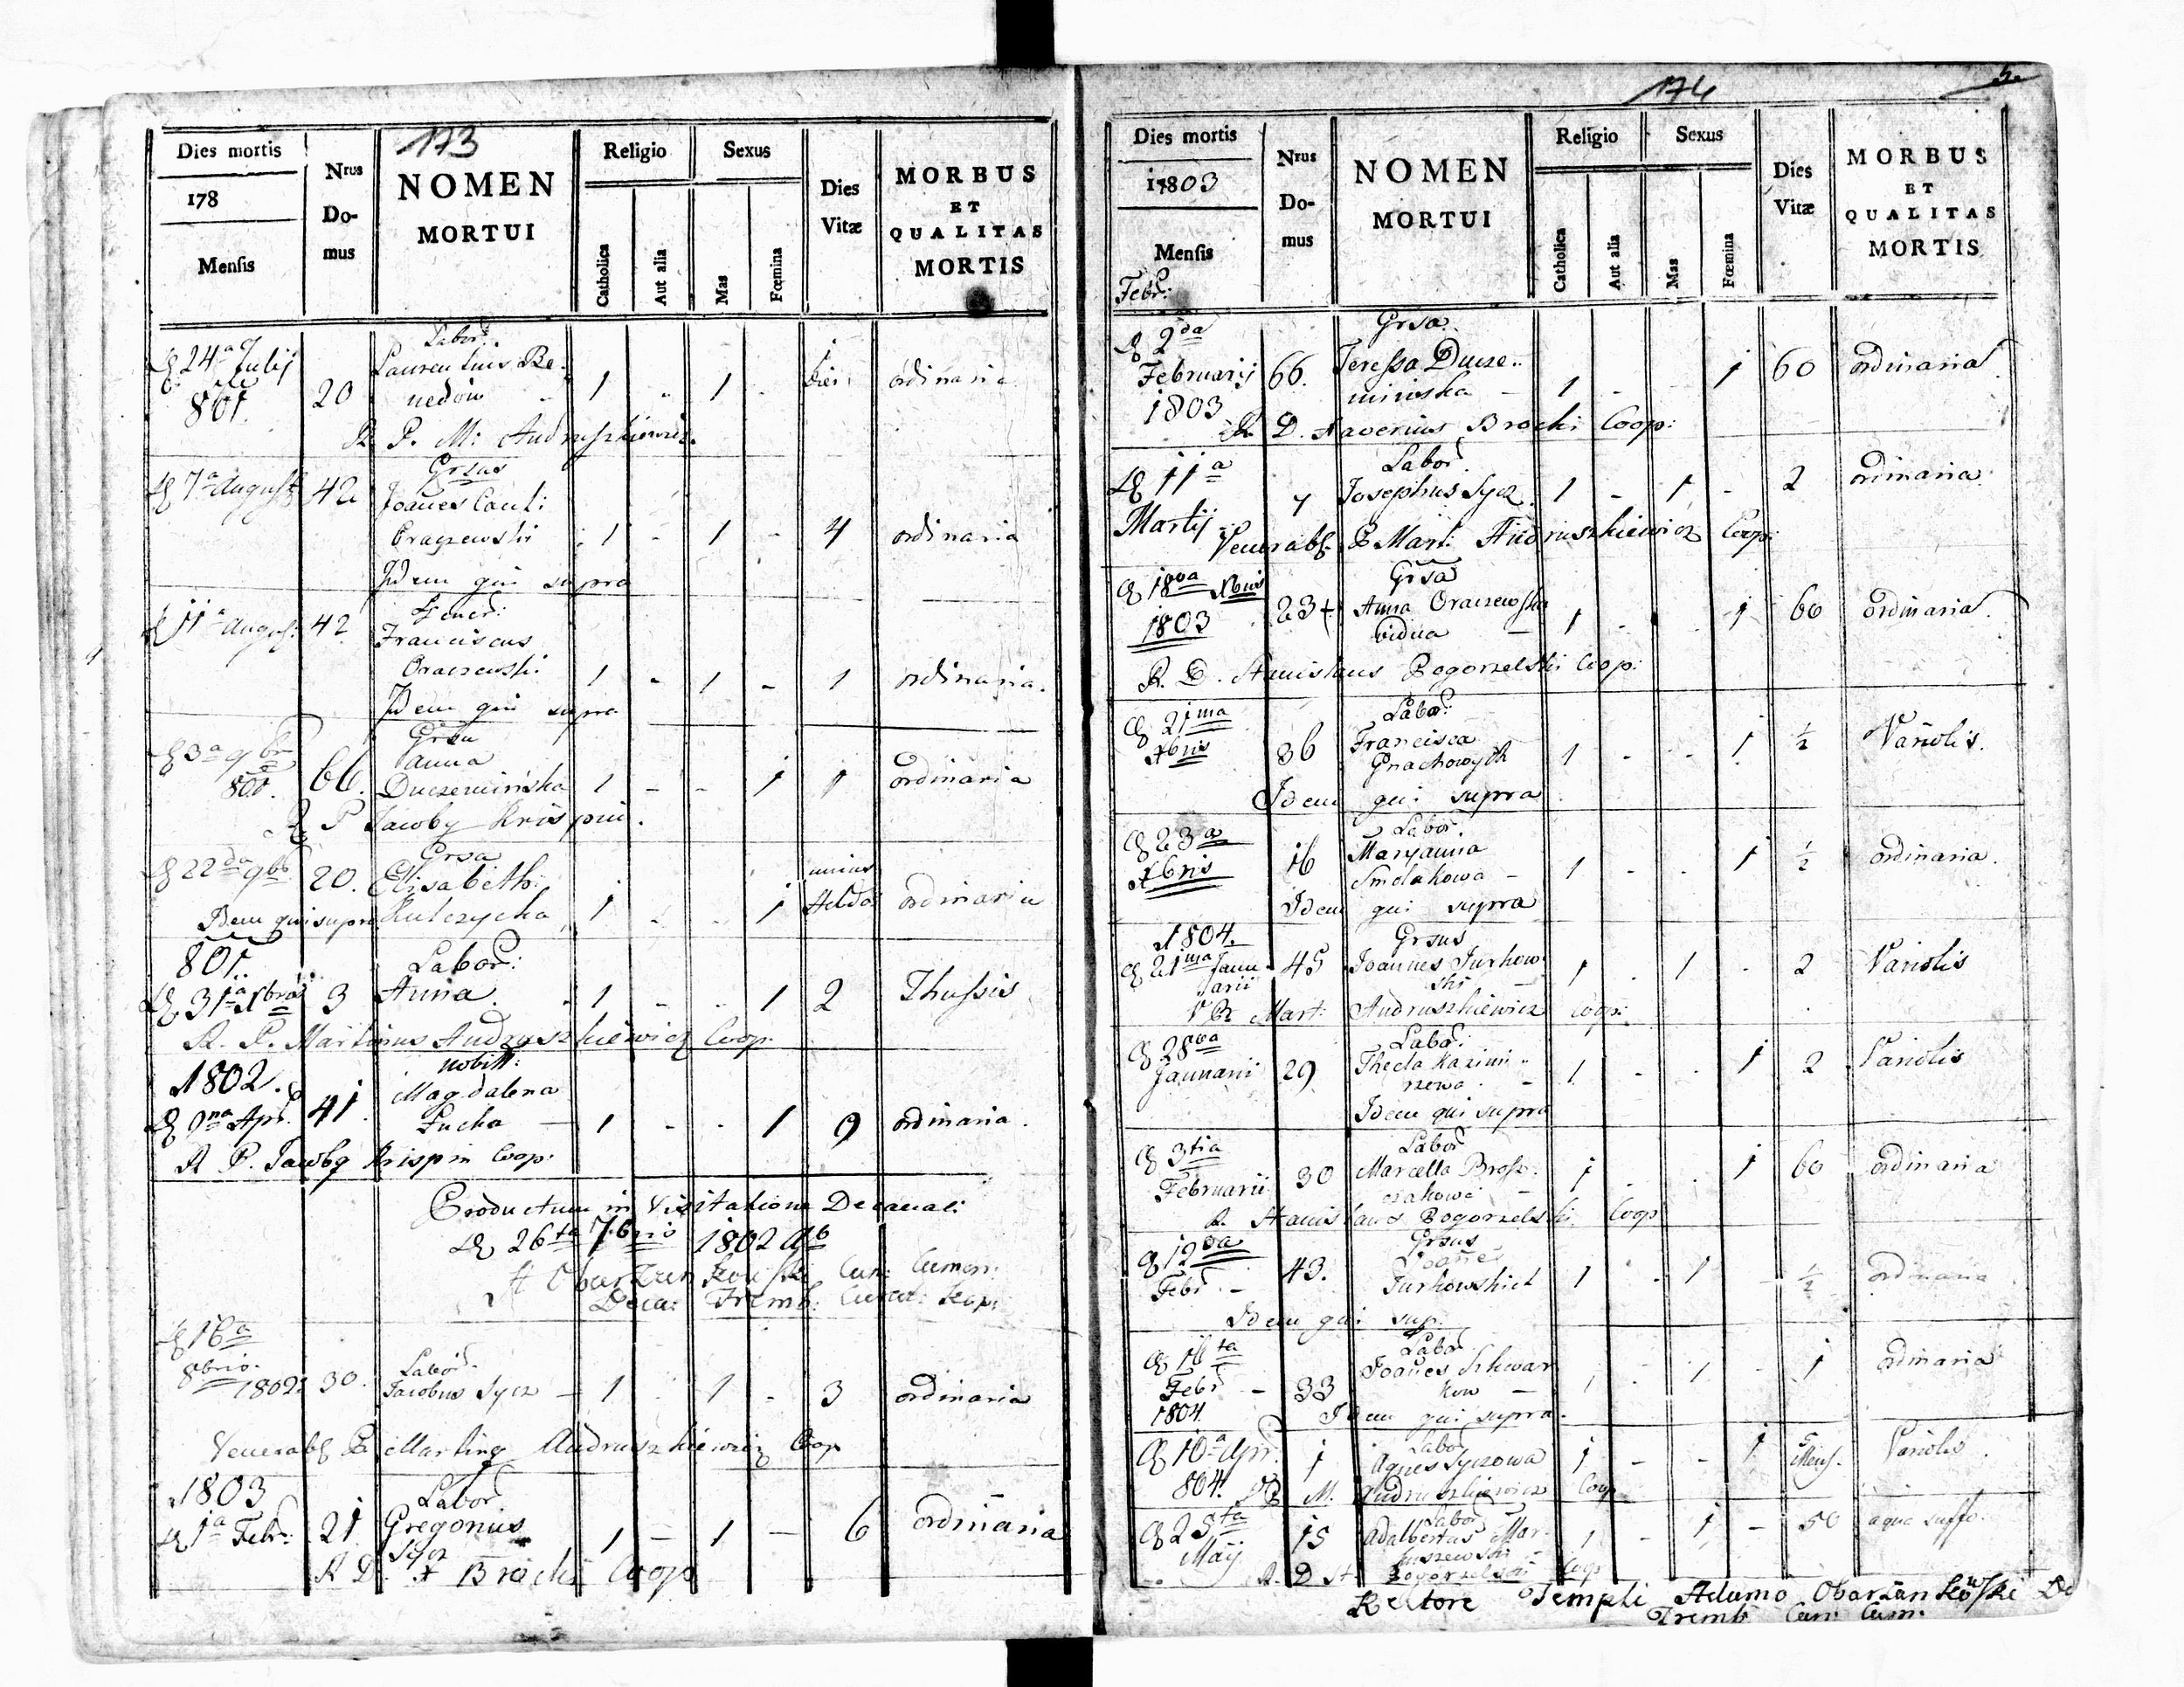 173
Dies mortis
178
Mensis
Nrus
Do-
mus
NOMEN
MORTUI
Religio
Catholica
Aut alia
Sexus
Mas
Fœmina
Dies
Vitæ
MORBUS
ET
QUALITAS
MORTIS
24a Julij
801.
20
Labor:
Laurentius Be
nedow
1 - 1 -
ordinaria
R. P. M: Andruszkiewicz
7a Augusti
42
Grsus
Joanes Canti:
Oraczewski
1 - 1 - 4 ordinaria
Idem qui supra
11a Augus: 42
Gener:
Franciscus
Oraczewski
1 - 1 - 1 ordinaria.
Idem qui supra
3a 9br
801.
66.
Grsa
Anna
Duczeminska
1 - - 1 1 ordinaria
R P Jacoby Krispin.
22da 9br 20.
Grsa
Elisabeth:
Kulczycka
1 - - 1 unius ordinaria
Idem qui supra
801.
31a Xbra 3
Labor:
Anna
1 - - 1 2 Thussis
R. P. Martinus Andruszkiewicz Coop.
1802.
9na Apr. 41.
nobill:
Magdalena
Lucha
1 - - 1 9 ordinaria.
R P. Jacoby Krispin Coop:
Productum in Visitatione Decanali
26ta 7bris 1802
A Obarzankowski Can:
Deca: Tremb:
16a
8bris
1802 30.
Labor
Jacobus Sycz - 1 - 1 - 3 ordinaria
Venerabl P. Marting Andruszkiewicz Coop
1803
1a Febr: 21
Labor
Gregorius
Sycz
1 - 1 - 6 ordinaria
R D. X Brocki Coop
174
5.
Dies mortis
1803
Mensis
Febr:
Nrus
Do-
mus
NOMEN
MORTUI
Religio
Catholica
Aut alia
Sexus
Mas
Fœmina
Dies
Vitæ
MORBUS
ET
QUALITAS
MORTIS
2da
Februarij
1803
66.
Grsa.
Teressa Ducze..
minska
1 - - 1 60 ordinaria
R D. Xaverius Brocki Coop:
11a
Martij
Labor.
Josephus Sycz 1 - 1 - 2 ordinaria
Venerabl. P Mart: Andruszkiewicz Coop:
18va Xbris
1803
23
Grsa
Anna Oraczewska
vidua
1 - 1 60 ordinaria
R. D. Stanislaus Bogorzelski Coop:
21ma
Xbris
36
Labor:
Francisca
Gnachowych
1 - - 1 ½ Variolis.
Idem qui supra
23a
Xbris
16
Labor.
Maryanna
Smolakowa
1 - - 1 ½ ordinaria.
Idem qui supra
1804.
21ma Janu
arii
45
Grsus
Joannes Turkow
ski
1 - 1 - 2 Variolis
Mart: Andruszkiewicz Coop:
28va
Januarii 29
Labor:
Thecla Kazimi..
rzewa
1 - - 1 2 Variolis
Idem qui supra
3tia
Februarii 30
Labor
Marcella Brosz.
czakowa
1 - - 1 60 ordinaria
R. Stanislaus Bogorzelski Coop
12va
Febr - 43.
Grsus
Joane
Turkowskich
1 - 1 - ½ ordinaria
Idem qui sup:
Febr -
1804.
33
Labor
Joanes Sikwar
kow
1 - 1 - 1 ordinaria
Idem qui supra.
10a Apr.
804.
1
Labor
Agnes Syczowa
1 - - 1 5
Mens. Variolis.
M. Andruszkiewicz Coop
25ta
Maij
15
Labor
Adalbertus Mar-
1 - 1 - 50 aqua suffo.
R. D St Bogorzelski Coop
Rectore Templi Adamo Obarzankowski De
Tremb Can: